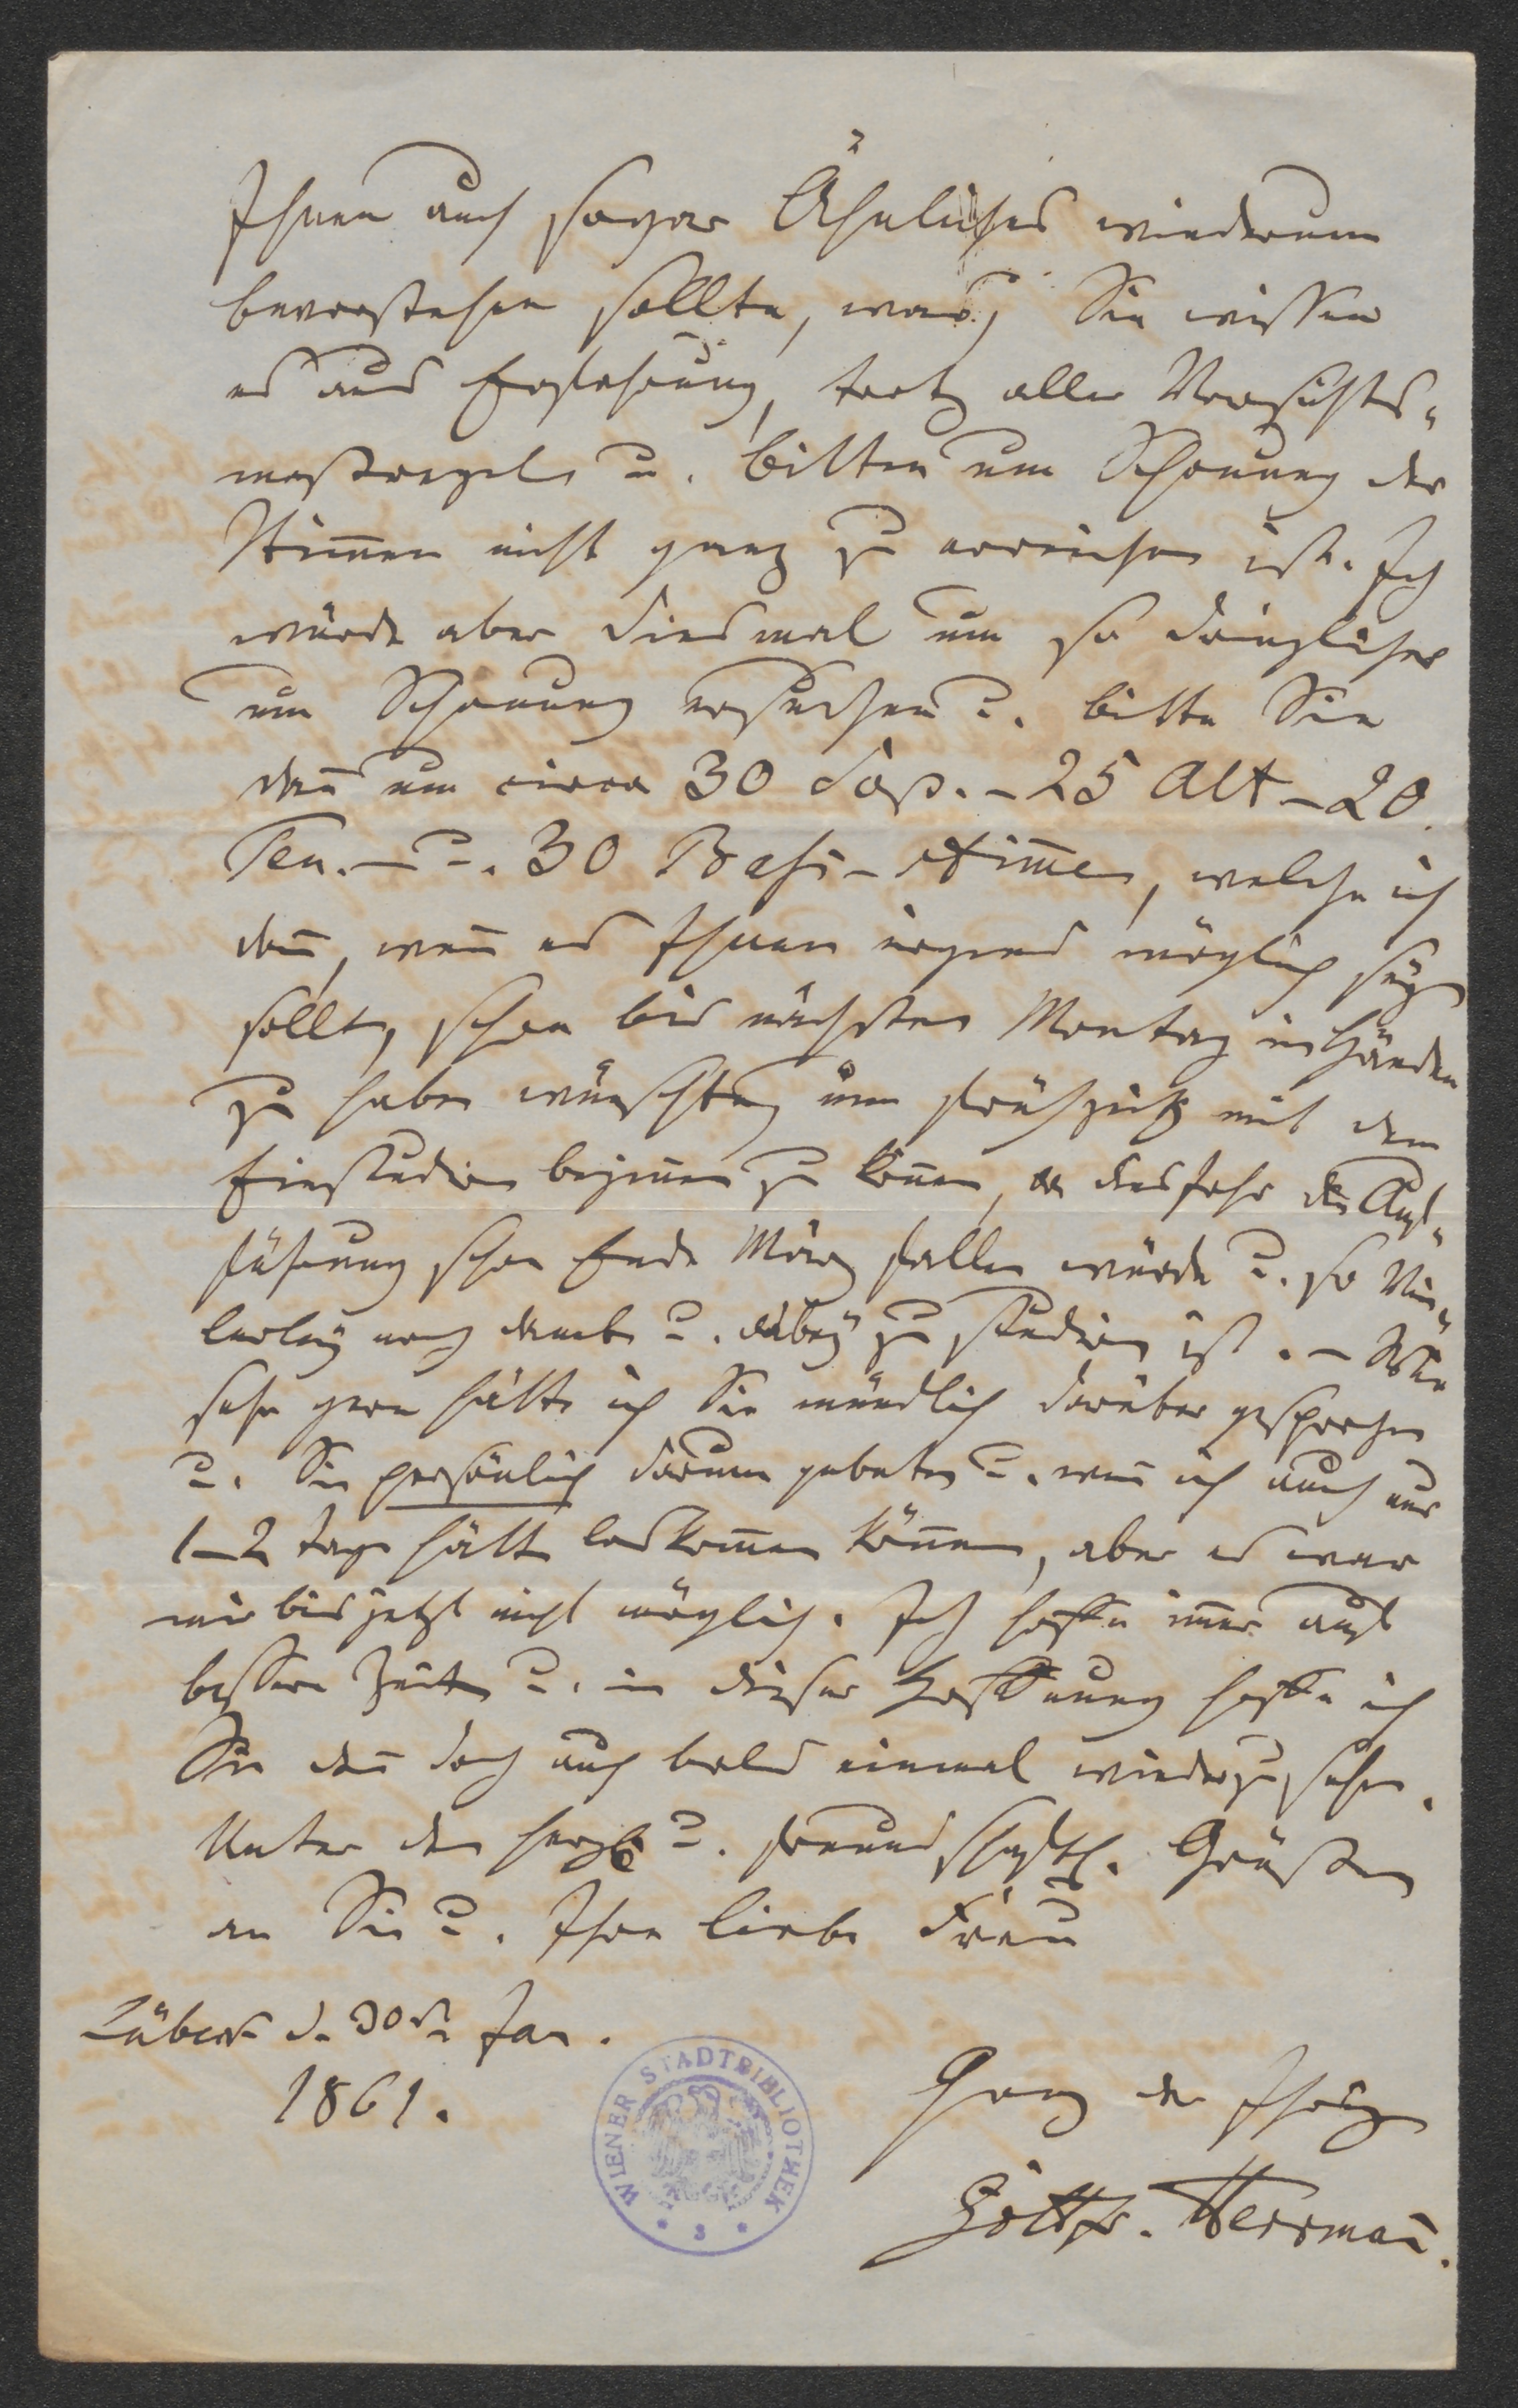 Ihnen auch sogar Ähnliches wiederum
bevorstehen sollte, was, Sie wissen
es aus Erfahrung, trotz aller Vorsichts-
maßregeln u. bitten um Schonung der
Stim̅en nicht ganz zu erreichen ist. Ich
würde aber diesmal um so dringlicher
um Schonung ersuchen u. bitte Sie
dan̅ um circa 30 Sop. - 25 Alt - 20
Ten. - u. 30 Bass-Stim̅en, welche ich
dan̅, wen̅ es Ihnen irgend möglich seÿn
sollte, schon bis nächsten Montag in Händen
zu haben wünschte, um frühzeitig mit dem
Einstudiren begin̅en zu kön̅en, da dies Jahr die Auf-
führung schon Ende März fallen würde u. so Vie-
lerleÿ noch damit u. dabeÿ zu studiren ist. -
sehr gern hätte ich Sie mündlich darüber gesprochen
u. Sie persönlich darum gebeten u. wen̅ ich auch nur
1-2 Tage hätte loskom̅en kön̅en, aber es war
mir bis jetzt nicht möglich. Ich hoffe im̅er auf
bessere Zeiten u. in dieser Hoffnung hoffe ich
Sie dan̅ doch auch bald einmal wiederzusehen.
Unter den herzl. u. freundschaftl. Grüßen
an Sie u. Ihre liebe Frau
Lübeck d. 30st. Jan.
1861.
Ganz der Ihrige
Gottfr. Herrman̅.
WIENER STADTBIBLIOTHEK